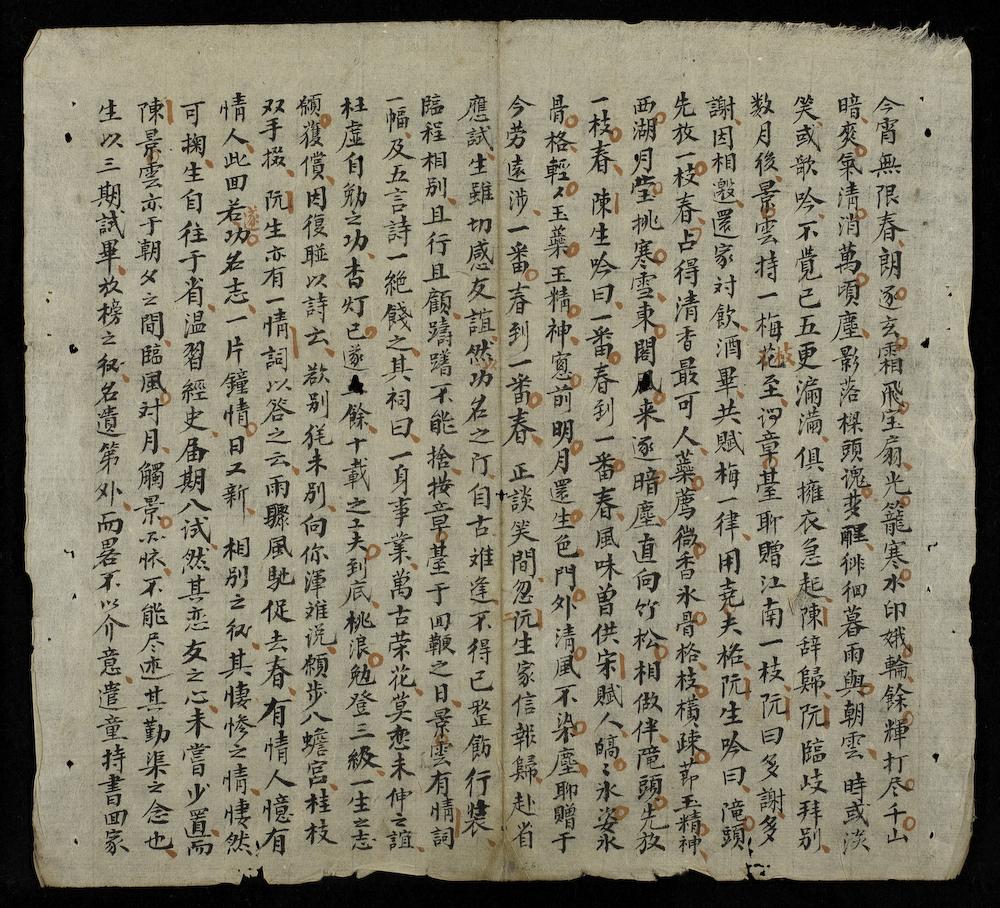 今宵無限春朗逐玄霜飛宝扇光籠寒水印娥輪餘輝打尽千山
暗爽氣清消萬頃塵影落樑頭魂夢醒徘徊暮雨與朝雲時或淡
笑或歌吟不覺已五更漏滿俱擁衣急起陳辞歸阮臨岐拜別
数月後景雲持一梅花枝至章臺聊贈江南一枝阮曰多謝多
謝因相邀還家対飲酒畢共賦梅一律用堯夫格阮生吟曰隴頭
先放一枝春占得清香最可人蘂蔫微香氷骨格枝橫疎節玉精神
西湖月堂挑寒雪東閣風来逐暗塵直向竹松相做伴隴頭先放
一枝春陳生吟曰一番春到一番春風味曽供宋賦人皜〻氷姿氷
骨格輕〻玉蘂玉精神窓前明月還生色門外清風不染塵聊贈于
今劳遠涉一番春到一番春正談笑間忽阮生家信報歸赴省
應試生雖切感友誼然功名之门自古难逢不得已整飭行装
臨程相别且行且顧躊躇不能捨按章臺于回鞭之日景雲有情詞
一幅及五言詩一絶餞之其祠曰一身事業萬古荣花莫恋未伸之誼
枉虚自勉之功書灯已遂餘十載之工夫到底桃浪勉登三級一生之志
頻獲償因復聯以詩云欲别猶未别向你渾难说頻步八蟾宮桂枝
双手掇阮生亦有一情詞以答之云雨驟風馳促去春有情人憶有
情人此回若遂功名志一片鐘情日又新相別之後其悽惨之情悽然
可掬生自往于省温習經史届期入試然其恋友之心未嘗少置而
陳景雲亦于朝夕之間臨風対月觸景不能尽述其勤渠之念也
生以三期試畢放榜之後名遺第外而畧不以介意遣童持書回家